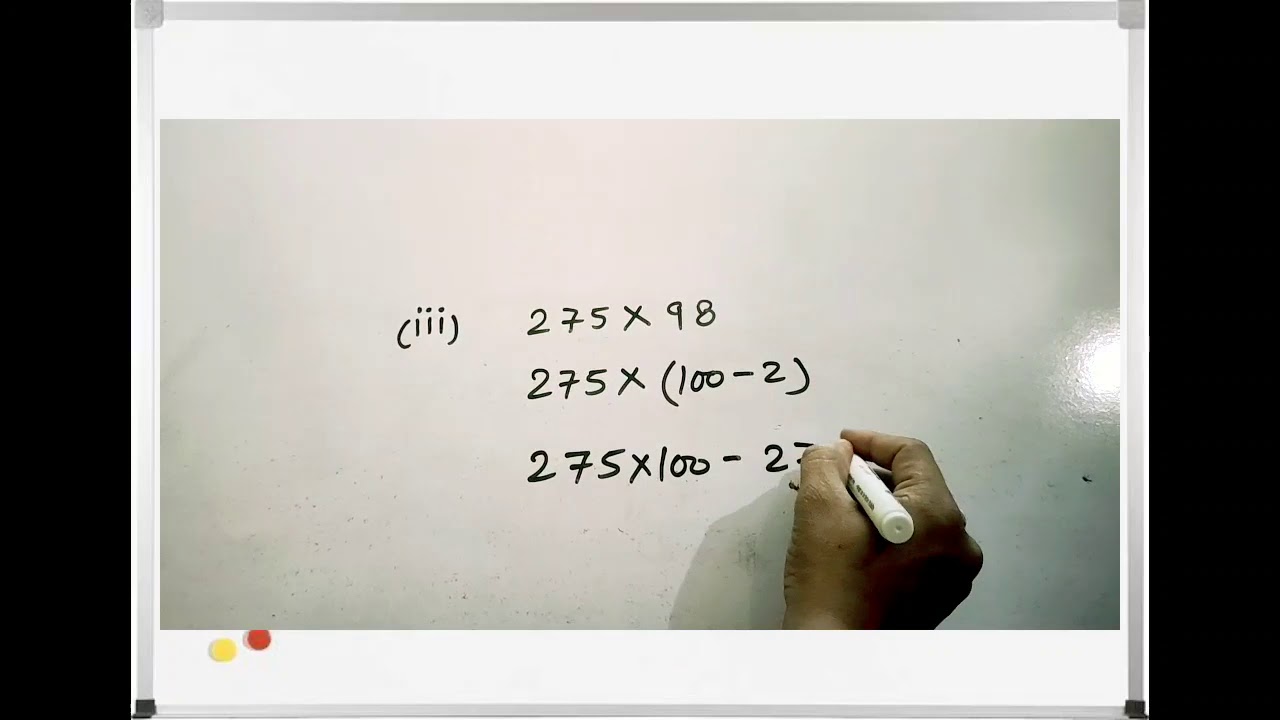 (iii) 275 × 98
275 × (100 - 2)
275 × 100 - 27